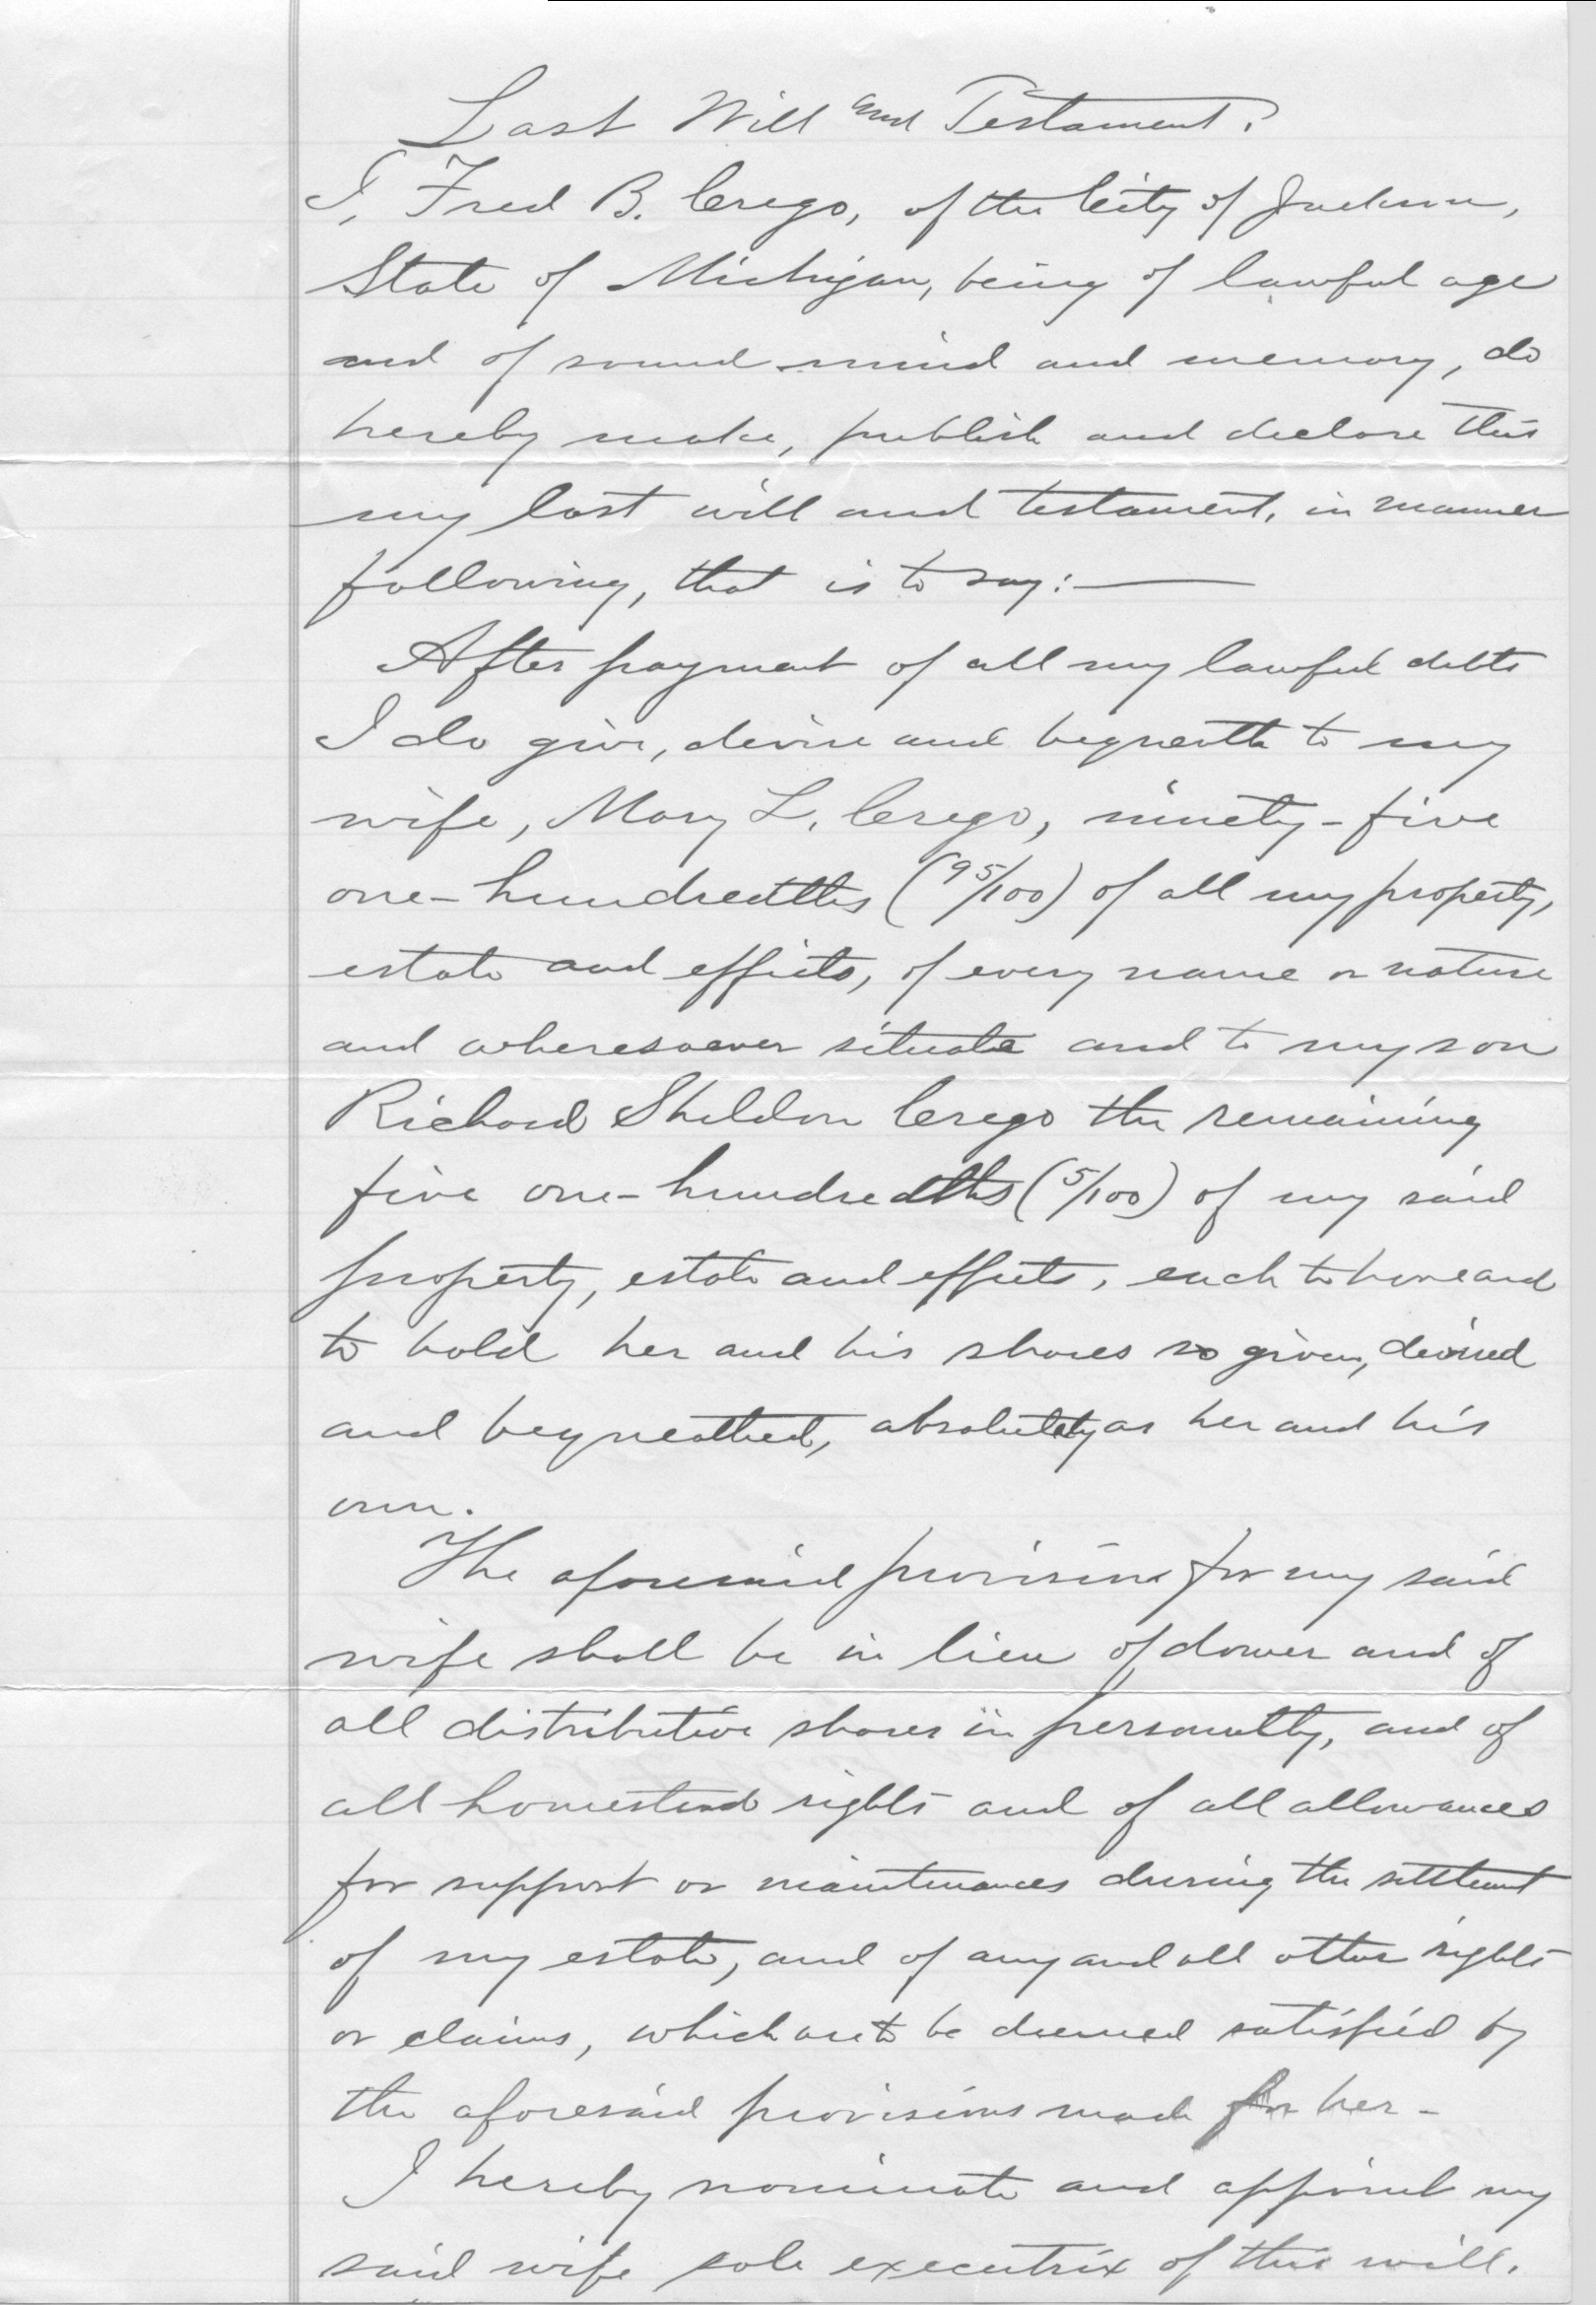 Last Will and Testament.
I, Fred B. Crego, of the City of Jackson,
State of Michigan, being of lawful age
and of sound mind and memory, do
hereby make, publish and declare this
my last will and testament, in manner
following, that is to say:—
After payment of all my lawful debts
I do give, devise and bequeath to my
wife, Mary L. Crego, ninety-five
one-hundredths (95/100) of all my property,
estate and effects, of every name or nature
and wheresoever situate and to my son
Richard Sheldon Crego the remaining
five one-hundredths (5/100) of my said
property, estate and effects, each to have and
to hold her and his shares so given, devised
and bequeathed, absolutely as her and his
own.
The aforesaid provisions for my said
wife shall be in lieu of dower and of
all distributive shares in personalty, and of
all homestead rights and of all allowances
for support or maintenances during the settlement
of my estate, and of any and all other rights
or claims, which are to be deemed satisfied by
the aforesaid provisions made for her-
I hereby nominate and appoint my
said wife sole executrix of this will.